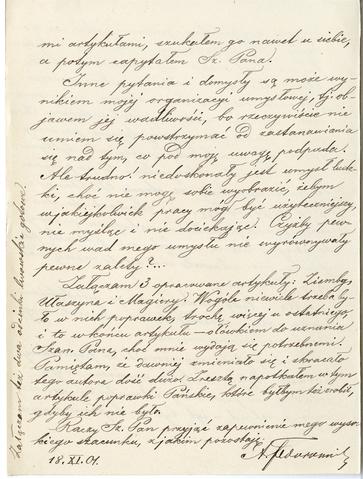 mi artykułami, szukałem go nawet u siebie,
a potym zapytałem Sz. Pana.
Inne pytania i domysły są może wy-
nikiem mojej organizacji umysłowej, t.j. ob-
jawem jej wadliwości, bo rzeczywiście nie
umiem się powstrzymać od zastanawiania
się nad tym, co pod moją uwagę podpada.
Ale trudno! niedoskonały jest umysł ludz-
ki, choć nie mogę sobie wyobrazić, żebym
w jakiejkolwiek pracy mógł być użyteczniejszy,
nie myśląc i nie dociekając. Czyżby pew-
nych wad mego umysłu nie wyrównywały
pewne zalety?...
Załączam 3 opracowane artykuły: Ziemby,
Waszyna i Magiery. Wogóle niewiele trzeba by-
ło w nich poprawek, trochę więcej u ostatniego,
i to w końcu artykułu – ołówkiem do uznania
Szan. Pana, choć mnie wydają się potrzebnemi.
Pamiętam, że dawniej zmieniało się i skracało
tego autora dość dużo. Zresztą napotkałem w tym
artykule poprawki Pańskie, które byłbym też zrobił,
gdyby ich nie było.
Raczy Sz. Pan przyjąć zapewnienie mego wyso-
kiego szacunku, z jakim pozostaję
18.XI.01. A.
Załączam też dwa odcinki lwowskie